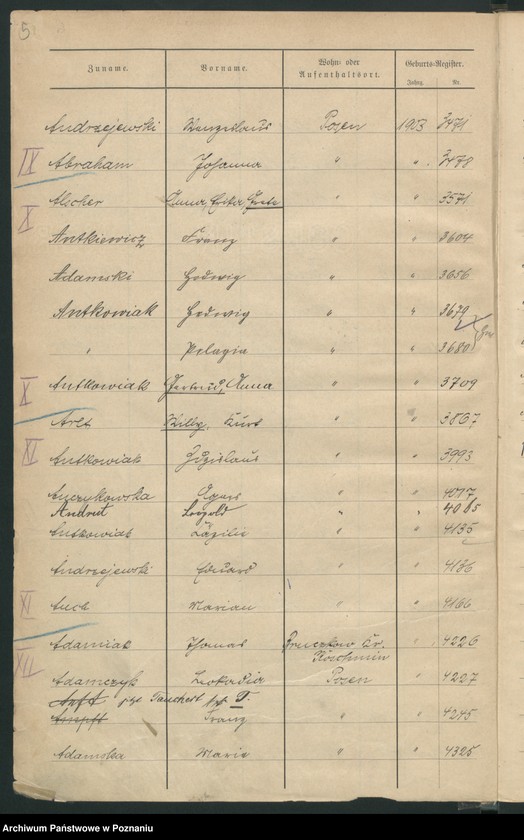 5
Zuname. Vorname. Wohn- oder Aufenthaltsort. Geburts-Register.
Jahrg. Nr.
Andrzejewski Wenzeslaus Posen 1903 3471
IX Abraham Johanna " " 3478
Alscher Anna, Erika Grete " " 3571
X Antkiewicz Franz " " 3604
Adamski Hedwig " " 3656
Antkowiak Hedwig " " 3679
" Pelagia " " 3680
X Antkowiak Gertrud, Anna " " 3709
Arlt Willy, Kurt " " 3867
XI Antkowiak Zdzislaus " " 3993
Anczykowska Agnes " " 4017
Andrut Leopold " " 4085
Antkowiak Cäzilie " " 4135
Andrzejewski Eduard " " 4136
XI Auch Marian " " 4166
Adamiak Thomas Pruczkow Kr. Koschmin " 4226
XII Adamczyk Leokadia Posen " 4237
Tauchert T.
Franz " " 4245
Adamska Marie " " 4325
Archiwum Państwowe w Poznaniu